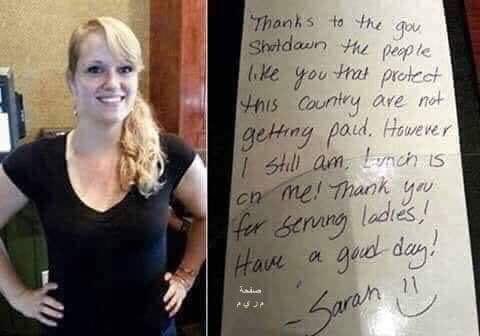 Thanks to the gov.
Shotdown the people
like you that protect
this Country are not
getting paid. However
I still am. Lunch is
on me! Thank you
for serving ladies!
Have a good day!
-Sarah
صفحة
م ر ي م